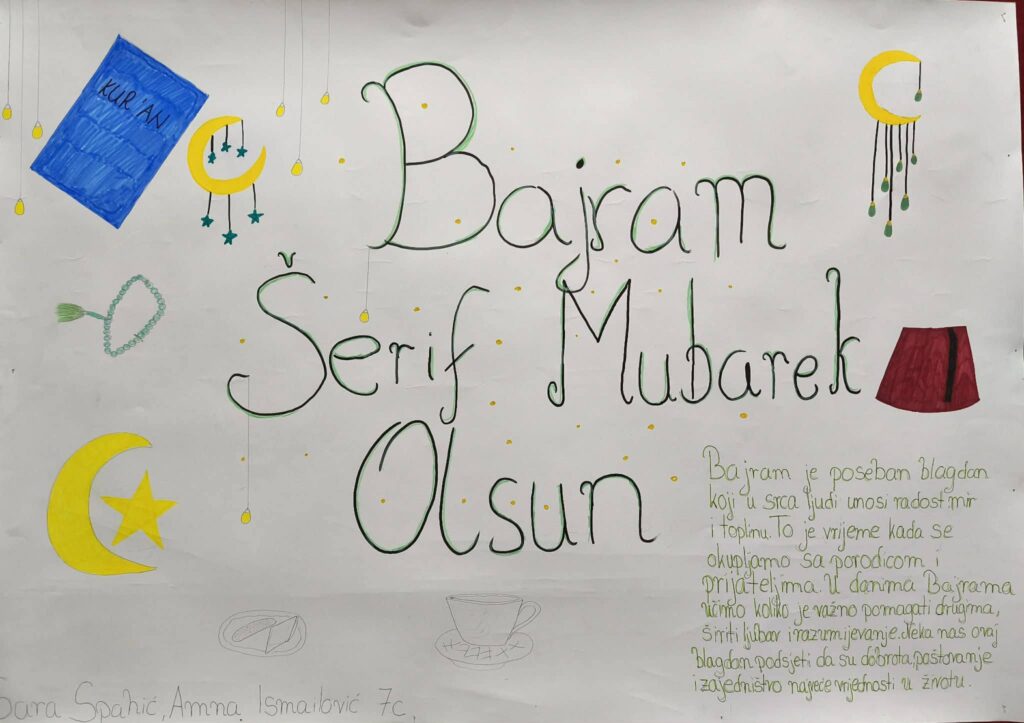 KUR'AN
Bajram
Šerif Mubarek
Olsun
Bajram je poseban blagdan
koji u srca ljudi unosi radost, mir
i toplinu. To je vrijeme kada se
okupljamo sa porodicom i
prijateljima. U danima Bajrama
učimo koliko je važno pomagati drugima,
širiti ljubav i razumijevanje. Neka nas ovaj
blagdan podsjeti da su dobrota, poštovanje
i zajedništvo najveće vrijednosti u životu.
Sara Spahić, Amna Ismailović 7c,